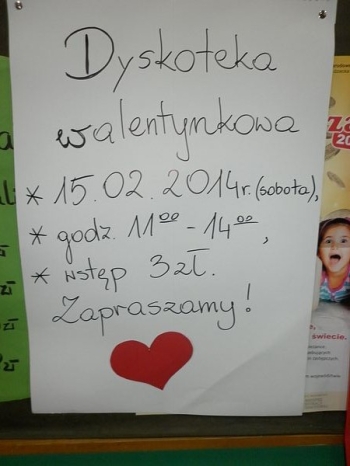 Dyskoteka
walentynkowa
* 15.02.2014r. (sobota),
* godz. 11⁰⁰ - 14⁰⁰,
* wstęp 3zł.
Zapraszamy!
świecie.